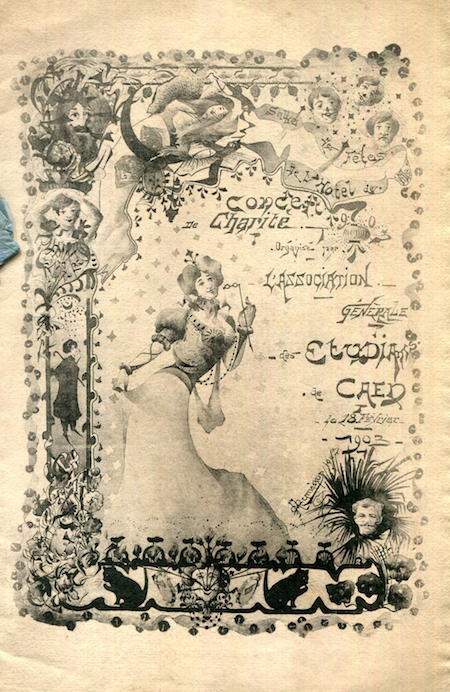 Salle
des Fêtes
de l'Hôtel de
Concert
De Charité
Organisé par
L'ASSOCIATION
GÉNÉRALE
des ETUDIANTS
de CAEN
le 18 Février
1902